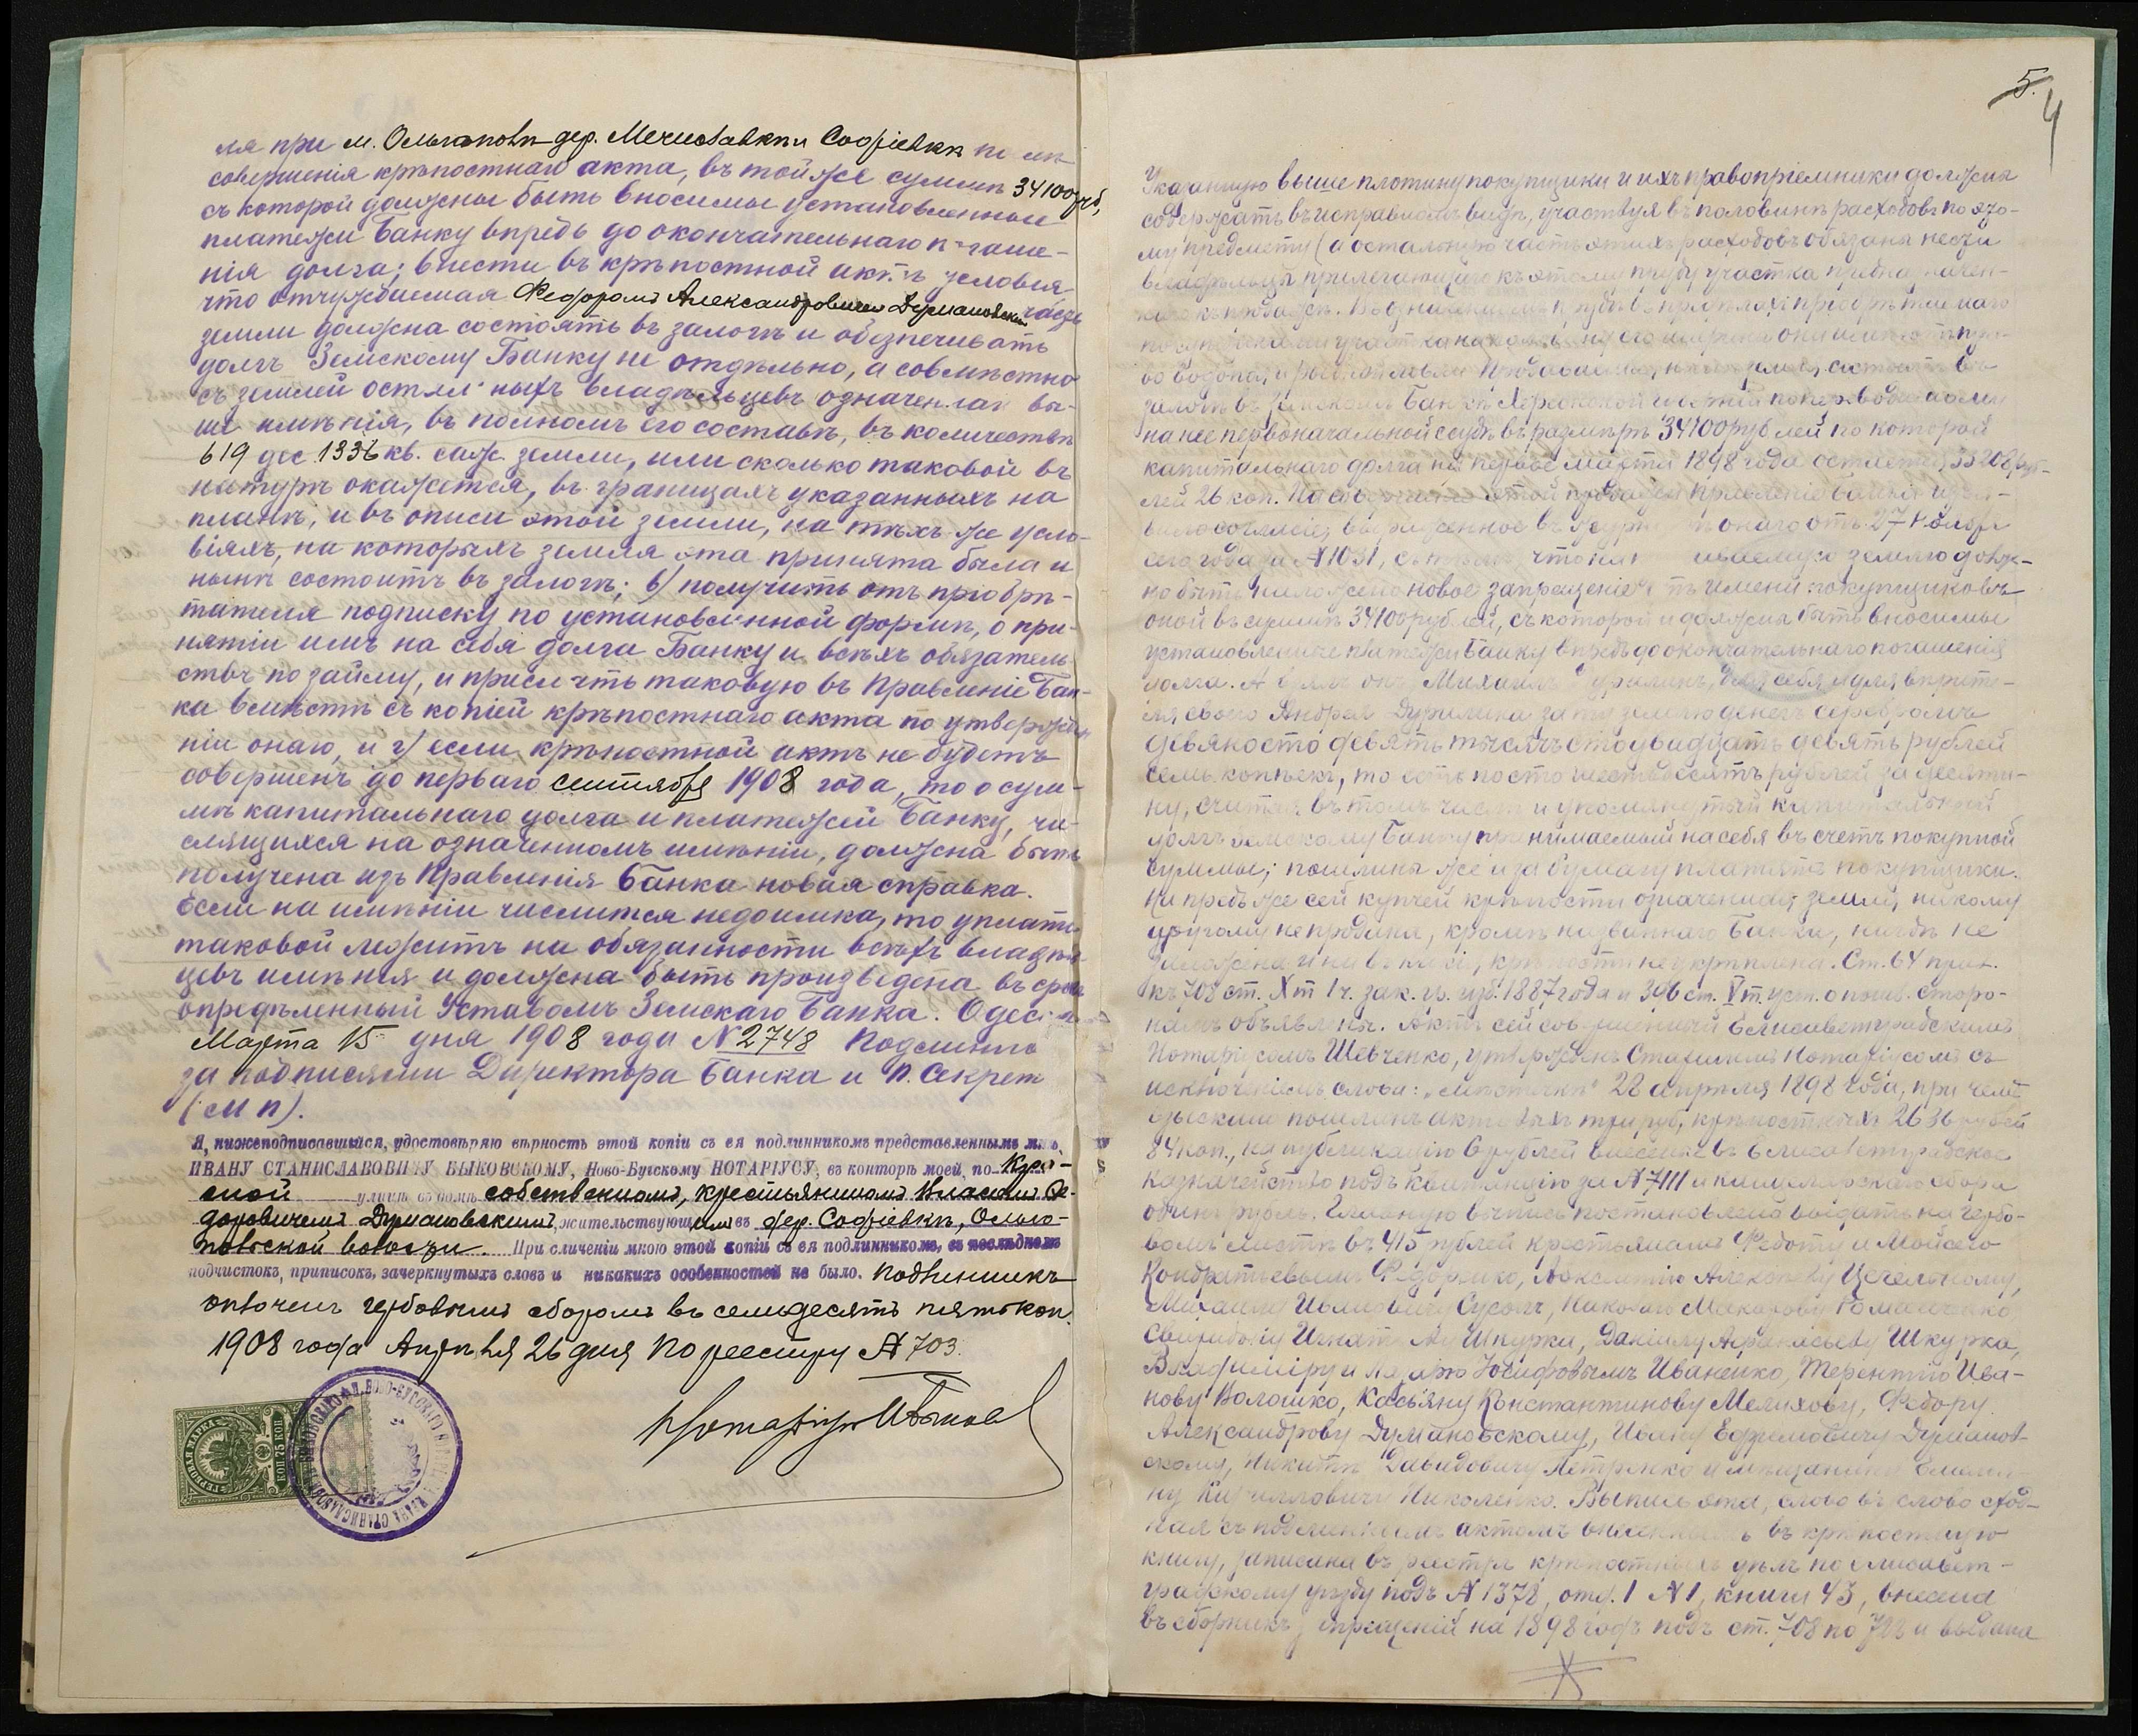 ля при м. Ольгополѣ дер. Мечиславки и Софіевкѣ по
совершенія крѣпостнаго акта, въ той же суммѣ 34100 руб,
съ которой должны быть вносимы установленные
платежи Банку впредь до окончательнаго погаше-
нія долга; внести въ крѣпостной актъ условія
что отчуждаемая Федоромъ Александровичемъ Думановскимъ часть
земли должна состоять въ залогѣ и обезпечивать
долгъ Земскому Банку не отдѣльно, а совмѣстно
съ землей остальныхъ владѣльцевъ означеннаго вы-
ше имѣнія, въ полномъ его составѣ, въ количествѣ
619 дес. 1336 кв. саж. земли, или сколько таковой въ
натурѣ окажется, въ границахъ указанныхъ на
планѣ, и въ описи этой земли, на тѣхъ же усло-
віяхъ, на которыхъ земля эта принята была и
нынѣ состоитъ въ залогѣ; в) получить отъ пріобрѣ-
тателя подписку по установленной формѣ, о при-
нятіи имъ на себя долга Банку и всѣхъ обязатель
ствъ по займу, и прислать таковую въ Правленіе Бан-
ка вмѣстѣ съ копіей крѣпостнаго акта по утвержде
ніи онаго, и г) если крѣпостной актъ не будетъ
совершенъ до перваго сентября 1908 года, то о сум-
мѣ капитальнаго долга и платежей Банку, чи-
слящихся на означенномъ имѣніи, должна быть
получена изъ Правленія Банка новая справка.
Если на имѣніи числится недоимка, то уплата
таковой лежитъ на обязанности всѣхъ владѣль
цевъ имѣнія и должна быть произведена въ срокъ
опредѣленный Уставомъ Земскаго Банка. Одесса
Марта 15 дня 1908 года № 2748 Подлинно
за подписями Директора Банка и П. Секрет
(М П).
Я, нижеподписавшійся, удостовѣряю вѣрность этой копіи съ ея подлинникомъ представленнымъ мнѣ,
ИВАНУ СТАНИСЛАВОВИЧУ БЫКОВСКОМУ, Ново-Бугскому НОТАРІУСУ, въ конторѣ моей, по Кра-
сной улицѣ въ домѣ собственномъ, крестьяниномъ Власомъ Ѳе-
доровичемъ Думановскимъ, жительствующимъ въ дер. Софіевкѣ, Ольго-
польской волости. При сличеніи мною этой копіи съ ея подлинникомъ, въ послѣднемъ
подчистокъ, приписокъ, зачеркнутыхъ словъ и никакихъ особенностей не было. Подлинникъ
оплоченъ гербовымъ сборомъ въ семьдесятъ пять коп.
1908 года Апрѣля 26 дня По реестру № 703.
Нотаріусъ
ГЕРБОВАЯ МАРКА
75 КОП
5. 4
Указанную выше плотину покупщики и ихъ правопріемники должны
содержать въ исправномъ видѣ, участвуя въ половинѣ расходовъ по это-
му предмету (а остальную часть этихъ расходовъ обязаны нести
владѣльцы прилегающаго къ этому пруду участка
залогѣ въ Земскомъ Банкѣ Херсонской губерніи по переводѣ
на нее первоначальной ссуды въ размѣрѣ 34100 рублей по которой
капитальнаго долга на первое марта 1898 года остается 33208 руб-
лей 26 коп. На этой Правленіе Банка изъя-
вило согласіе, выраженное въ онаго отъ 27
сего года за № 1031, съ тѣмъ что на землю долж-
но быть наложено новое запрещеніе имени покупщиковъ
оной въ суммѣ 34100 рублей, съ которой и должны быть вносимы
установленные платежи Банку впредь до окончательнаго погашенія
долга. А взялъ онъ Михаилъ для себя и для
Андрея за ту землю денегъ серебромъ
девяносто девять тысячъ сто двадцать девять рублей
семь копѣекъ, то есть по сто шестьдесятъ рублей за десяти-
ну, считая въ томъ числѣ и упомянутый капитальный
долгъ Земскому Банку принимаемый на себя въ счетъ покупной
суммы; пошлины же и за бумагу платятъ покупщики.
Напредь же сей купчей крѣпости означенная земля, никому
другому не продана, кромѣ названнаго Банка, нигдѣ не
заложена и ни въ какія, крѣпости не укрѣплена. Ст. 64 прил.
къ 708 ст. X т. 1 ч. зак. гр. изд. 1887 года и 396 ст. V т. уст. о пошл. сторо-
намъ объявлены. Актъ сей совершенный Елисаветградскимъ
Нотаріусомъ Шевченко, утвержденъ Старшимъ Нотаріусомъ съ
исключеніемъ слова: „мѣстечкѣ“ 28 апрѣля 1898 года, при чемъ
взыскано пошлинъ актовыхъ три руб, крѣпостныхъ 2636 рублей
84 коп., на публикацію 6 рублей внесены въ Елисаветградское
Казначейство подъ квитанцію за № 7111 и канцелярскаго сбора
одинъ рубль. Главную выпись постановлено выдать на гербо-
вомъ листѣ въ 415 рублей крестьянамъ Федоту и Мойсею
Кондратьевымъ Федоренко, Авксентію Алексѣеву Цегельному,
Михаилу Ивановичу Сусолъ, Николаю Макарову Романченко,
Свиридону Шкурка, Даніилу Аѳанасьеву Шкурка,
Владиміру и Лазарю Іосифовымъ Иваненко, Терентію Ива-
нову Волошко, Касьяну Константинову Мелихову, Федору
Александрову Думановскому, Ивану Ефремовичу Думанов-
скому, Никитѣ Давидовичу Петренко и мѣщанину Емелья-
ну Кирилловичу Николенко. Выпись эта, слово въ слово сход-
ная съ подлиннымъ актомъ внесеннымъ въ крѣпостную
книгу, записана въ реестръ крѣпостныхъ дѣлъ по Елисавет-
градскому уѣзду подъ № 1378, отд. 1 № 1, книги 43, внесена
въ сборникъ запрещеній на 1898 годъ подъ ст. 708 по 721 и выдана